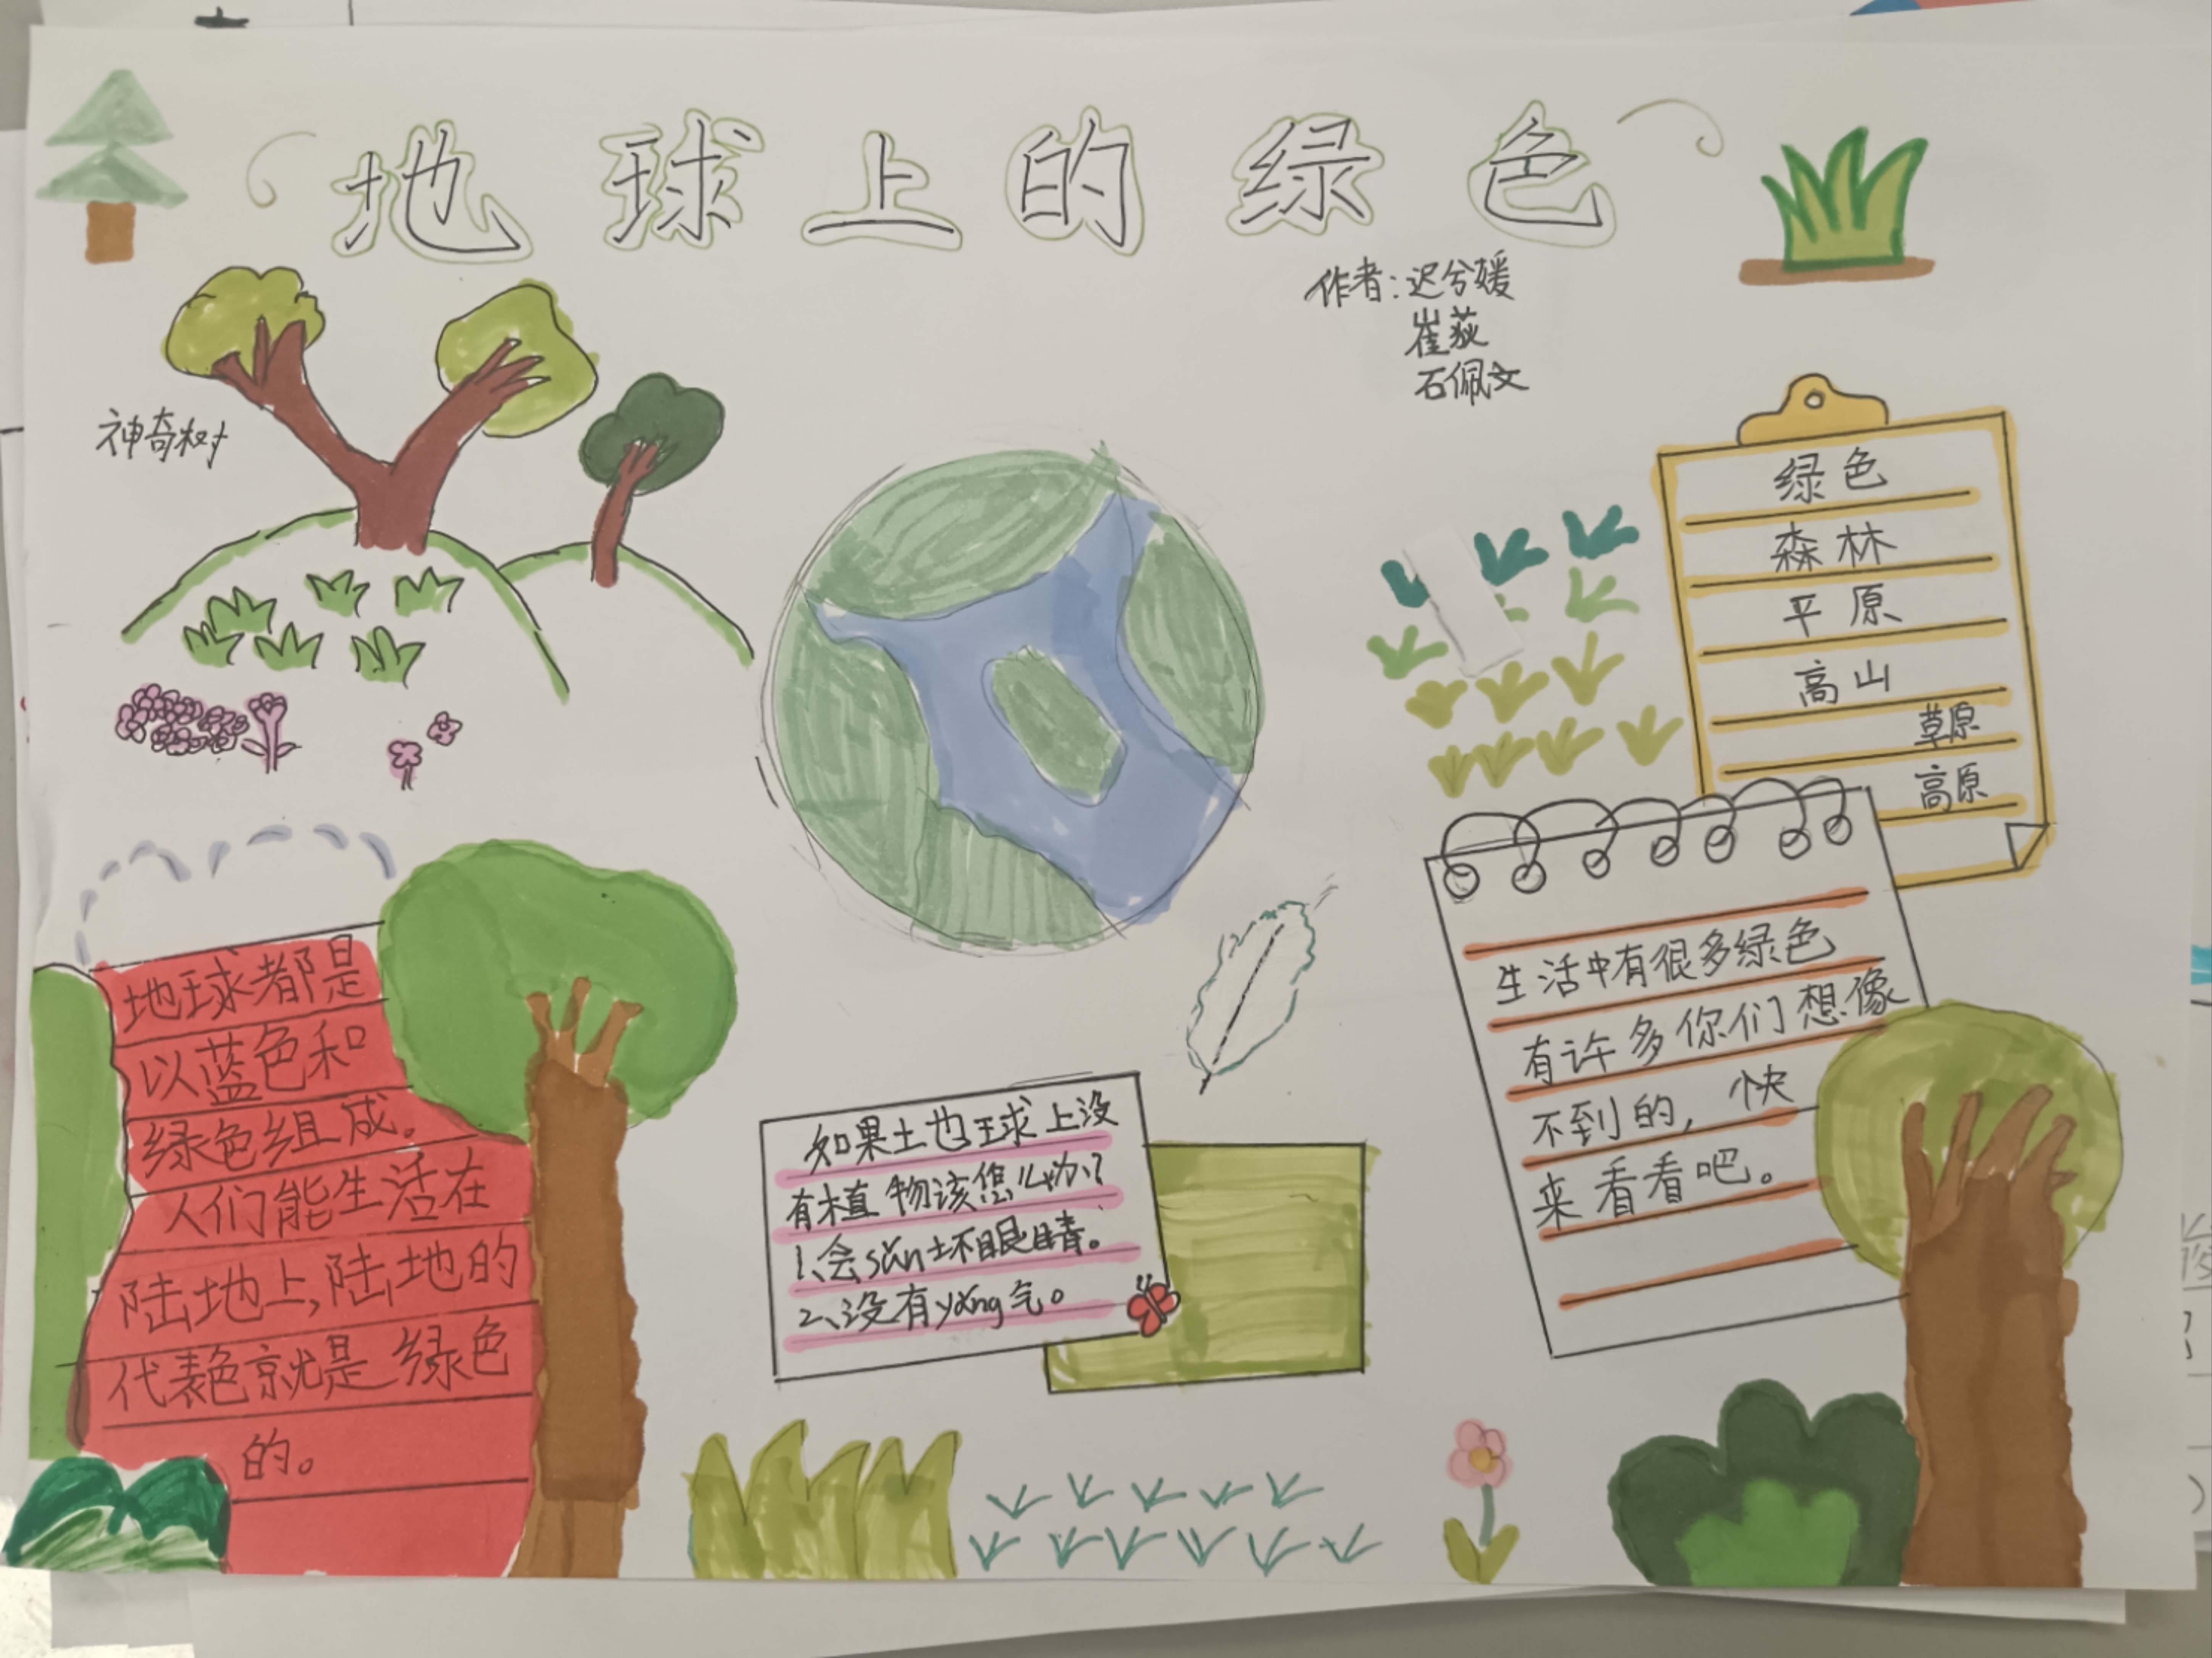 地球上的绿色
作者:迟兮媛
崔荻
石佩文
神奇树
绿色
森林
平原
高山
草原
高原
地球都是
以蓝色和
绿色组成。
人们能生活在
陆地上,陆地的
代表色就是绿色
的。
如果土也球上没
有植物该怎么办?
1、会sǔn坏眼睛。
2、没有yǎng气。
生活中有很多绿色
有许多你们想像
不到的,快
来看看吧。